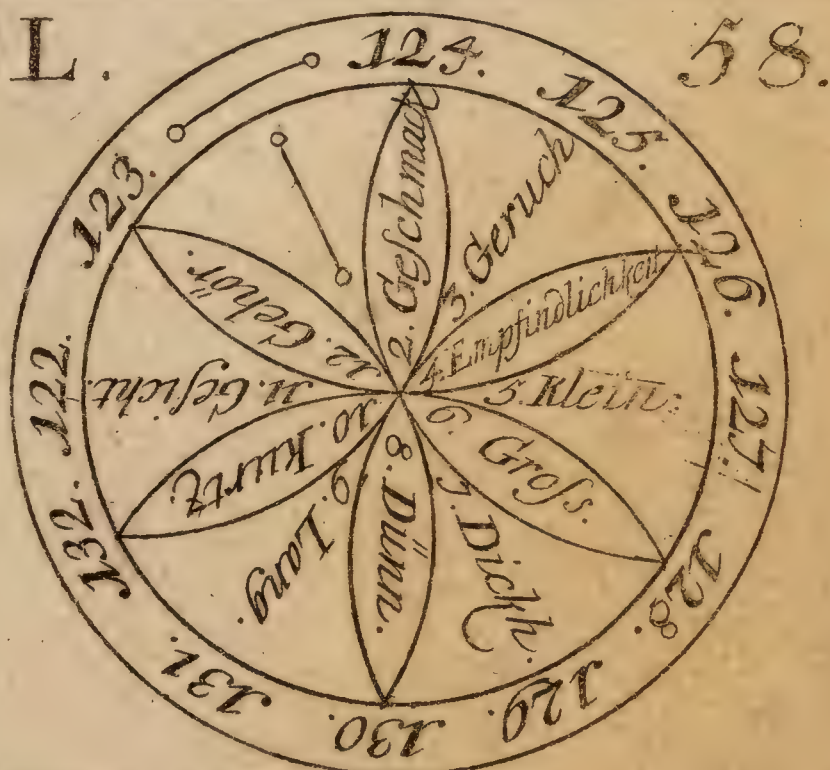 L.
58.
124.
125.
126.
127.
128.
129.
130.
131.
132.
122.
123.
2. Geſchmack
3. Geruch
4. Empfindlichkeit
5. Klein:
6. Groſs.
7. Dickh.
8. Dünn.
9. Lang.
10. Kurtz.
11. Geſicht.
12. Gehör.